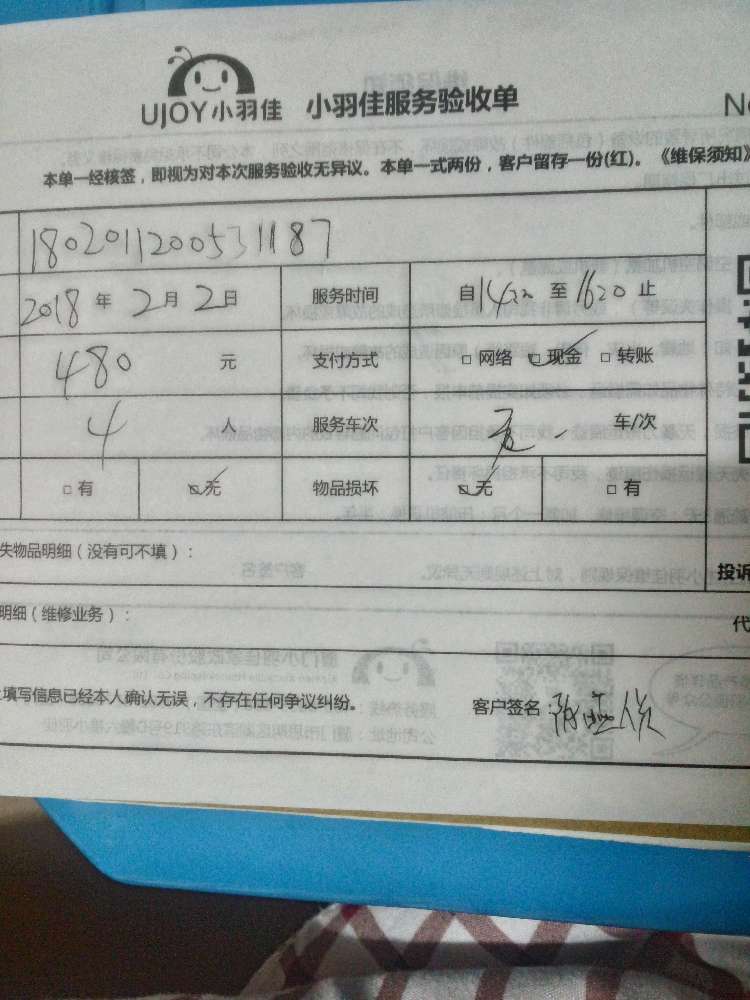 UJOY小羽佳 小羽佳服务验收单
本单一经核签，即视为对本次服务验收无异议。本单一式两份，客户留存一份(红)。《维保须知》
180201120053 1187
2018年 2月 2日 服务时间 自 至1620止
480 元 支付方式 □网络 ☑现金 □转账
4 人 服务车次 车/次
□有 ☑无 物品损坏 ☑无 □有
失物品明细（没有可不填）：
投诉
明细（维修业务）：
代
填写信息已经本人确认无误，不存在任何争议纠纷。 客户签名：